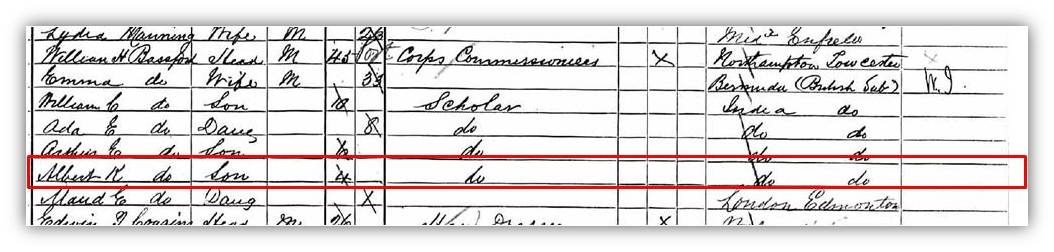 Lydia Manning Wife M 26
William H Bassford Head M 45 Corps Commissionaires X Northampton Towcester X
Emma do Wife M 33 Bermuda (British Sub) W.I.
William C do Son 10 Scholar India do
Ada E do Daug 8 do do do
Arthur E do Son do do do
Albert K do Son 4 do do do
Maud E do Daug X London Edmonton
Edwin Cousins Head M 26 X